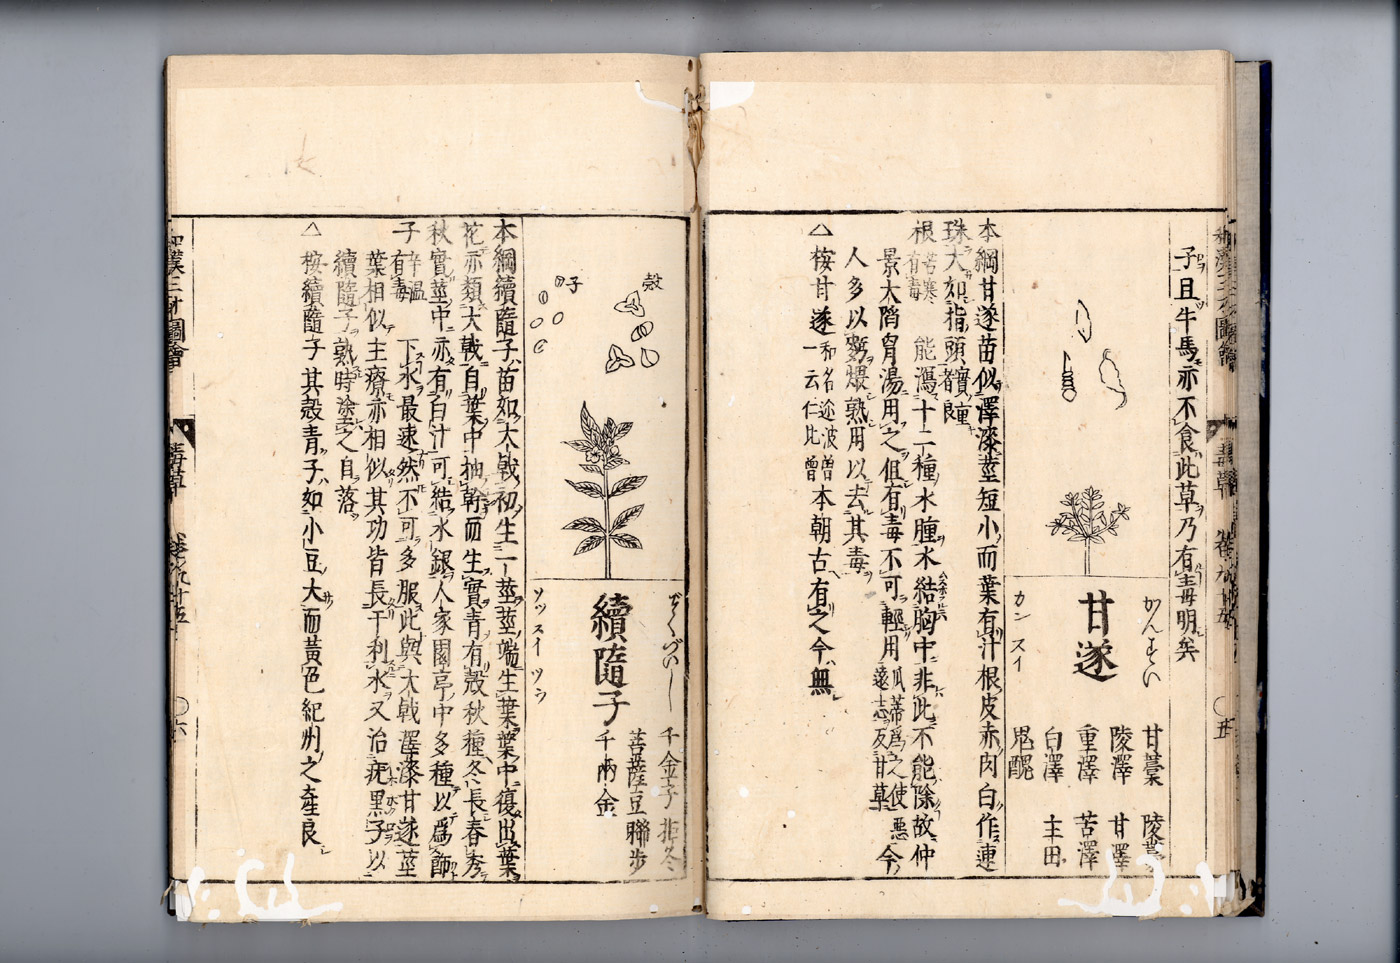 子且牛馬亦不食此草乃有毒明矣
かんすい
甘遂
カン スイ
甘藁 陵藁
陵澤 甘澤
重澤 苦澤
白澤 主田
鬼醜
本綱甘遂苗似澤漆莖短小而葉有汁根皮赤肉白作連
珠大如指頭實重者良
根苦寒有毒 能瀉十二種水腫水結胸中非此不能除故仲
景大陷胷湯用之但有毒不可輕用瓜蒂爲之使惡遠志反甘草今
人多以麪煨熟用以去其毒
△按甘遂和名途波曽一云仁比曽本朝古有之今無
殻
子
續隨子
ソッ スイ ツウ
千金子 拒冬
菩薩豆 聯步
千兩金
本綱續隨子苗如大戟初生一莖莖端生葉葉中復出葉
花亦類大戟自葉中抽幹而生實青有殻秋種冬長春秀
秋實莖中亦有白汁可結水銀人家園亭中多種以爲飾
子辛温有毒 下水最速然不可多服此與大戟澤漆甘遂莖
葉相似主療亦相似其功皆長于利水又治疣黒子以
續隨子熟時塗之自落
△按續隨子其殻青子如小豆大而黃色紀州之産良
和漢三才圖會 毒草 卷九十五 ○六